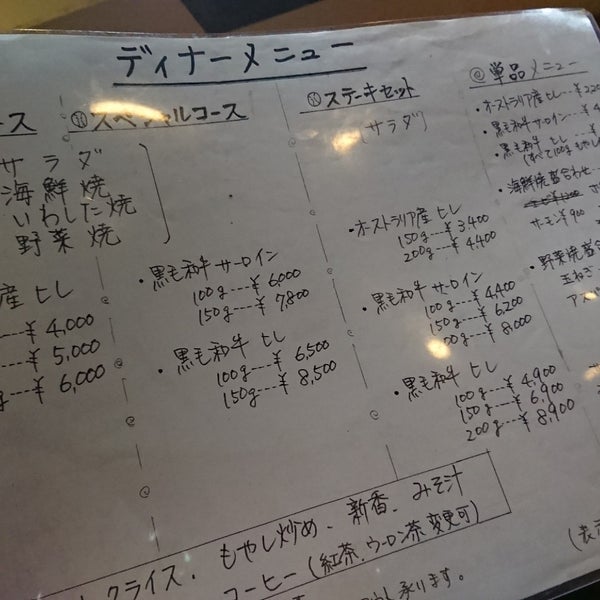 ディナーメニュー
ース
サラダ
海鮮焼
いわした焼
野菜焼
産ヒレ
¥4,000
¥5,000
g---¥6,000
スペシャルコース
・黒毛和牛サーロイン
100g---¥6,000
150g---¥7,800
・黒毛和牛ヒレ
100g---¥6,500
150g---¥8,500
ステーキセット
(サラダ)
・オーストラリア産ヒレ
150g---¥3,400
200g---¥4,400
・黒毛和牛サーロイン
100g---¥4,400
150g---¥6,200
00g---¥8,000
・黒毛和牛ヒレ
100g---¥4,900
150g---¥6,900
200g---¥8,900
@単品メニュー
・オーストラリア産ヒレ---¥220
・黒毛和牛サーロイン---¥4
・黒毛和牛ヒレ
・海鮮焼盛合わせ
サーモン¥900
・野菜焼盛合
玉ねぎ
アスパ
クライス、もやし炒め、新香、みそ汁
コーヒー(紅茶、ウーロン茶変更可)
承ります。